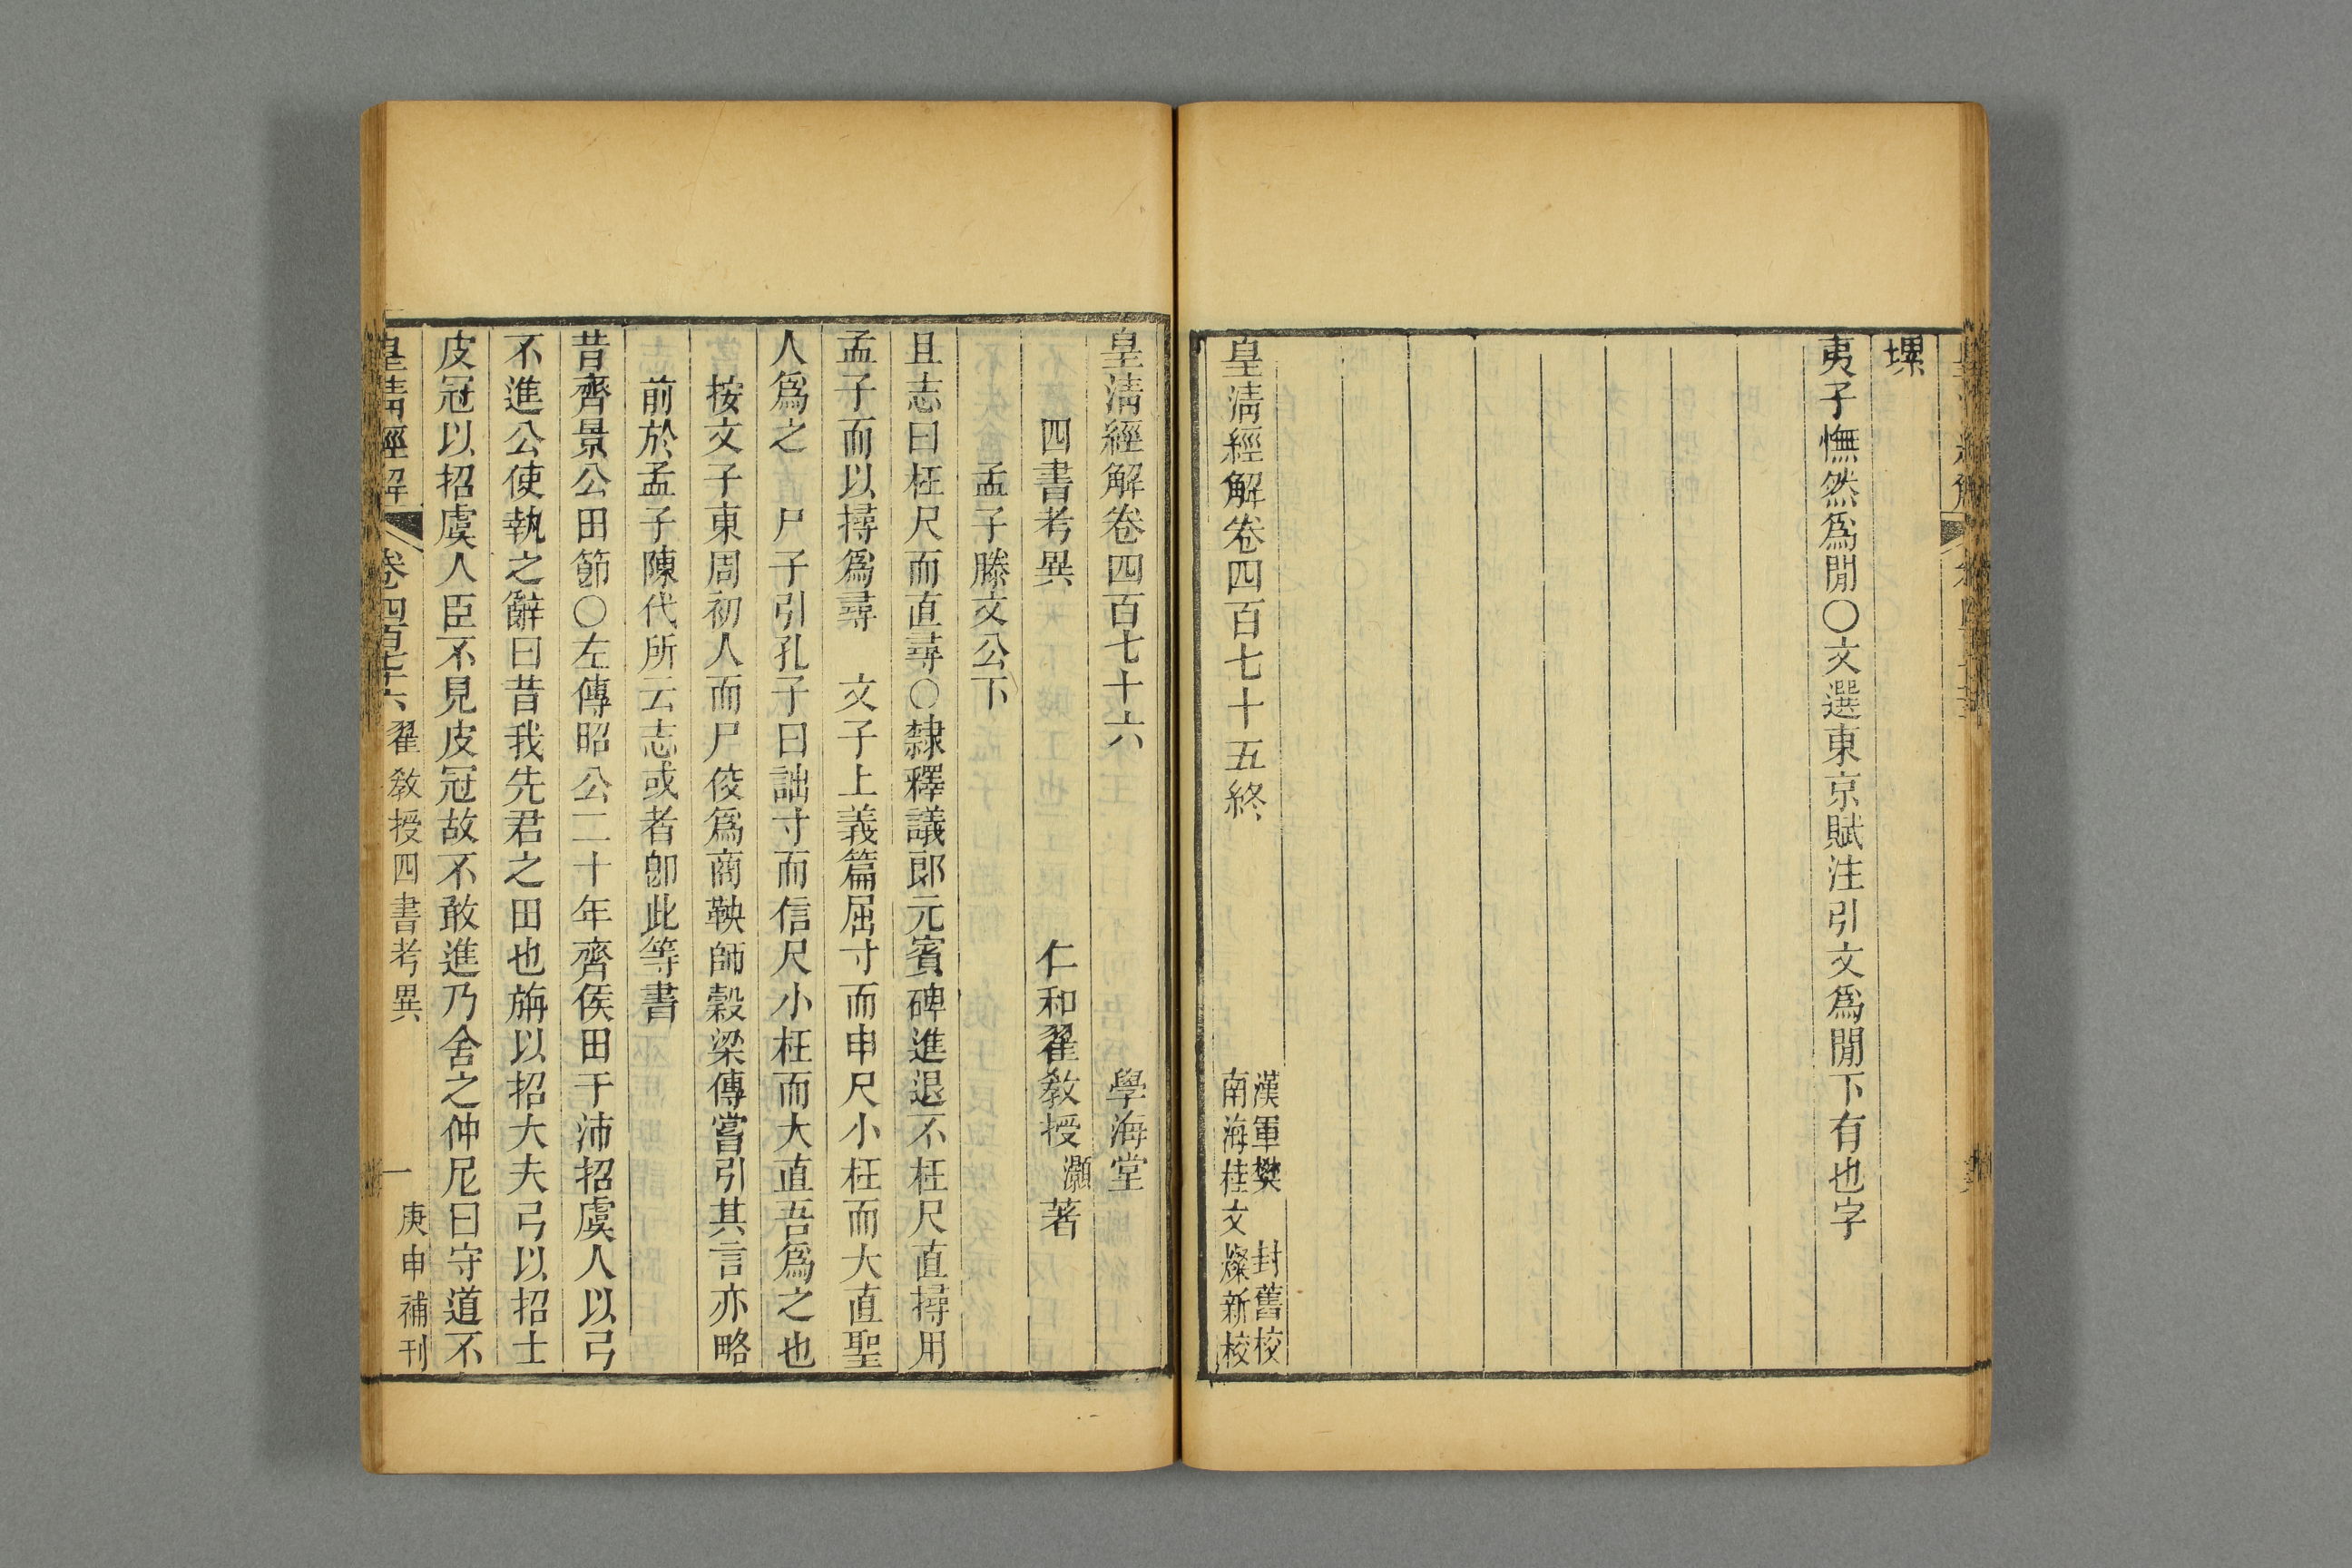 堁
夷子憮然爲閒〇文選東京賦注引文爲閒下有也字
皇清經解卷四百七十五終
漢軍樊封舊校
南海桂文燦新校
皇清經解卷四百七十六
學海堂
四書考異
仁和翟教授灝著
孟子滕文公下
且志曰枉尺而直尋〇隸釋議郎元賓碑進退不枉尺直撏用
孟子而以撏爲尋 文子上義篇屈寸而申尺小枉而大直聖
人爲之 尸子引孔子曰詘寸而信尺小枉而大直吾爲之也
按文子東周初人而尸佼爲商鞅師穀梁傳嘗引其言亦略
前於孟子陳代所云志或者卽此等書
昔齊景公田節〇左傳昭公二十年齊侯田于沛招虞人以弓
不進公使執之辭曰昔我先君之田也旃以招大夫弓以招士
皮冠以招虞人臣不見皮冠故不敢進乃舍之仲尼曰守道不
皇清經解
卷四百七十六
翟教授四書考異
一
庚申補刊